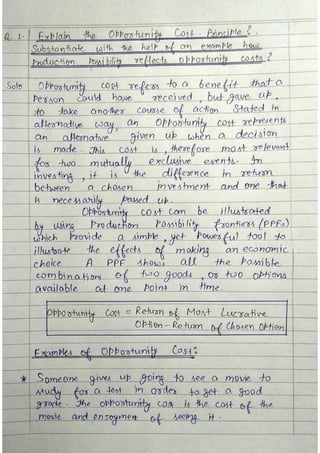 Q.1. Explain the Opportunity Cost Principle?
Substantiate with the help of an example how
production Possibility reflects opportunity costs?
Soln Opportunity cost refers to a benefit that a
Person could have received, but gave up,
to take another course of action. Stated in
alternative way, an Opportunity cost represents
an alternative given up when a decision
is made. This cost is, therefore most relevant
for two mutually exclusive events. In
investing, it is the difference in return
between a chosen investment and one that
is necessarily passed up.
Opportunity cost can be illustrated
by using Production Possibility frontiers (PPFs)
which Provide a simple, yet powerful tool to
illustrate the effects of making an economic
choice A PPF shows all the possible
combinations of two goods, or two options
available at one point in time.
Opportunity Cost = Return of Most Lucrative
Option - Return of Chosen Option
Examples of Opportunity Cost:
* Someone gives up going to see a movie to
study for a test in order to get a good
grade. The opportunity cost is the cost of the
movie and enjoyment of seeing it.